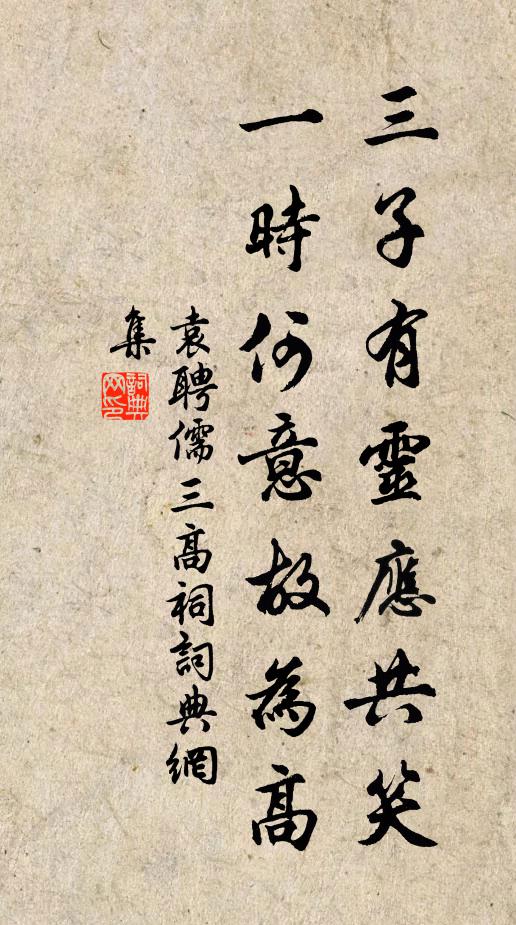 三子有靈應共笑
一時何意故為高
袁聘儒三高祠詞典網
集
詞典
网印